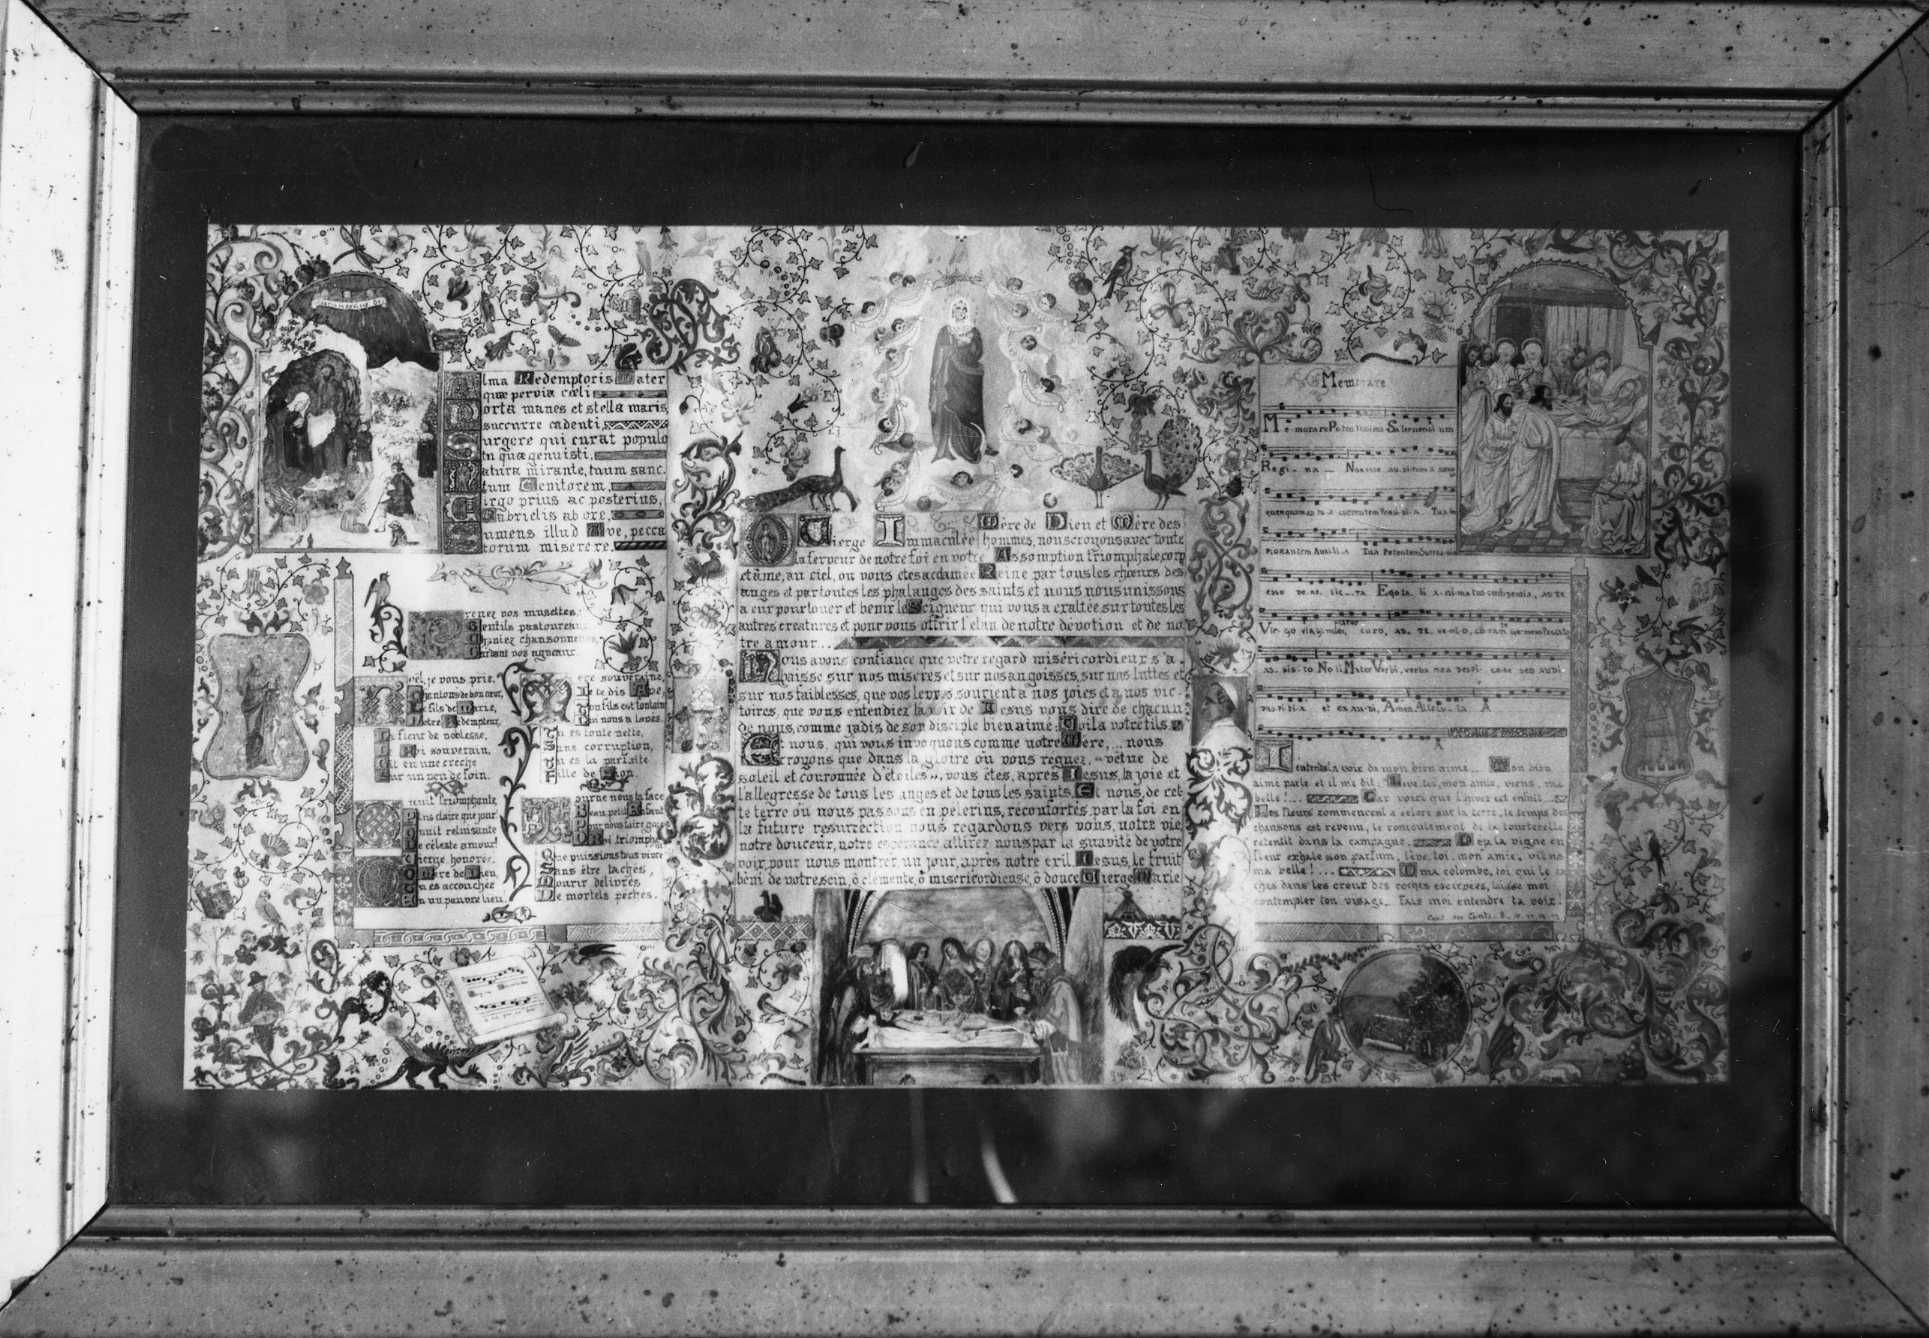 Alma Redemptoris Mater
quæ pervia cœli
Porta manes et stella maris,
succurre cadenti,
Surgere qui curat populo
tu quæ genuisti,
Natura mirante, tuum sanc-
tum Genitorem,
Virgo prius ac posterius,
Gabrielis ab ore,
Sumens illud Ave, pecca
torum miserere.
Prenez vos musettes,
Gentils pastoureaux,
chansonnettes
Gardant vos agneaux.
je vous prie,
Chantons de bon cœur,
Le fils de Marie,
Notre Rédempteur.
La fleur de noblesse,
Le Roi souverain,
Gît en une crèche
Sur un peu de foin.
O nuit triomphante,
Plus claire que jour
O nuit reluisante
De céleste amour!
Vierge honorée,
Mère de Dieu,
accouchée
En un pauvre lieu.
souveraine,
Je te dis Ave,
Ton fils est fontaine
Qui nous a lavés.
Tu es toute nette,
Sans corruption,
Tu es la parfaite
Fille de Sion.
Tourne nous ta face
Pour nous faire grâce
triomphant
Que puissions tous vivre
Sans être tachés,
Mourir délivrés
De mortels péchés.
Vierge Immaculée Mère de Dieu et Mère des
hommes, nous croyons avec toute
la ferveur de notre foi en votre Assomption triomphale corp
et âme, au ciel, où vous êtes acclamée Reine par tous les chœurs des
anges et par toutes les phalanges des saints et nous nous unissons
a eux pour louer et bénir le Seigneur qui vous a exaltée sur toutes les
autres créatures et pour vous offrir l'élan de notre dévotion et de no-
tre amour...
Nous avons confiance que votre regard miséricordieux s'a-
baisse sur nos misères et sur nos angoisses, sur nos luttes et
sur nos faiblesses, que vos lèvres sourient a nos joies et a nos vic-
toires, que vous entendiez la voix de Jesus vous dire de chacun
de nous, comme jadis de son disciple bien aimé: Voila votre fils
Et nous, qui vous invoquons comme notre Mère,... nous
croyons que dans la gloire où vous regnez, «vêtue de
soleil et couronnée d'étoiles», vous êtes, après Jesus, la joie et
l'allegresse de tous les anges et de tous les saints. Et nous, de cet-
te terre où nous passons en pèlerins, réconfortés par la foi en
la future résurrection nous regardons vers vous, notre vie,
notre douceur, notre espérance attirez nous par la suavité de votre
voix, pour nous montrer, un jour, après notre exil Jesus, le fruit
béni de votre sein, ô clemente, ô miséricordieuse, ô douce Vierge Marie
Memorare
Me-morare Potentissima Salernensium
Regi-na
Implorantem Auxilia Tua Petentem
Ego ta li a-nimatus confidentia, ad te
Virgo virginum, Mater curro, ad. te. ve-ni-o, coram
as-sis-to No li Mater Verbi, verba mea despi-cere sed audi
propitia et exaudi, Amen Allelu-ia A
J'entends la voix de mon bien aimé... Mon bien
aimé parle et il me dit: Lève toi, mon amie, viens, ma
belle!... Car voici que l'hiver est enfui...
Les fleurs commencent a éclore sur la terre, le temps des
chansons est revenu, le roucoulement de la tourterelle
retentit dans la campagne. Déja la vigne en
fleur exhale son parfum, lève toi, mon amie, viens
ma belle!... O ma colombe, toi qui te ca
ches dans les creux des roches escarpées, laisse moi
contempler ton visage. Fais moi entendre ta voix!